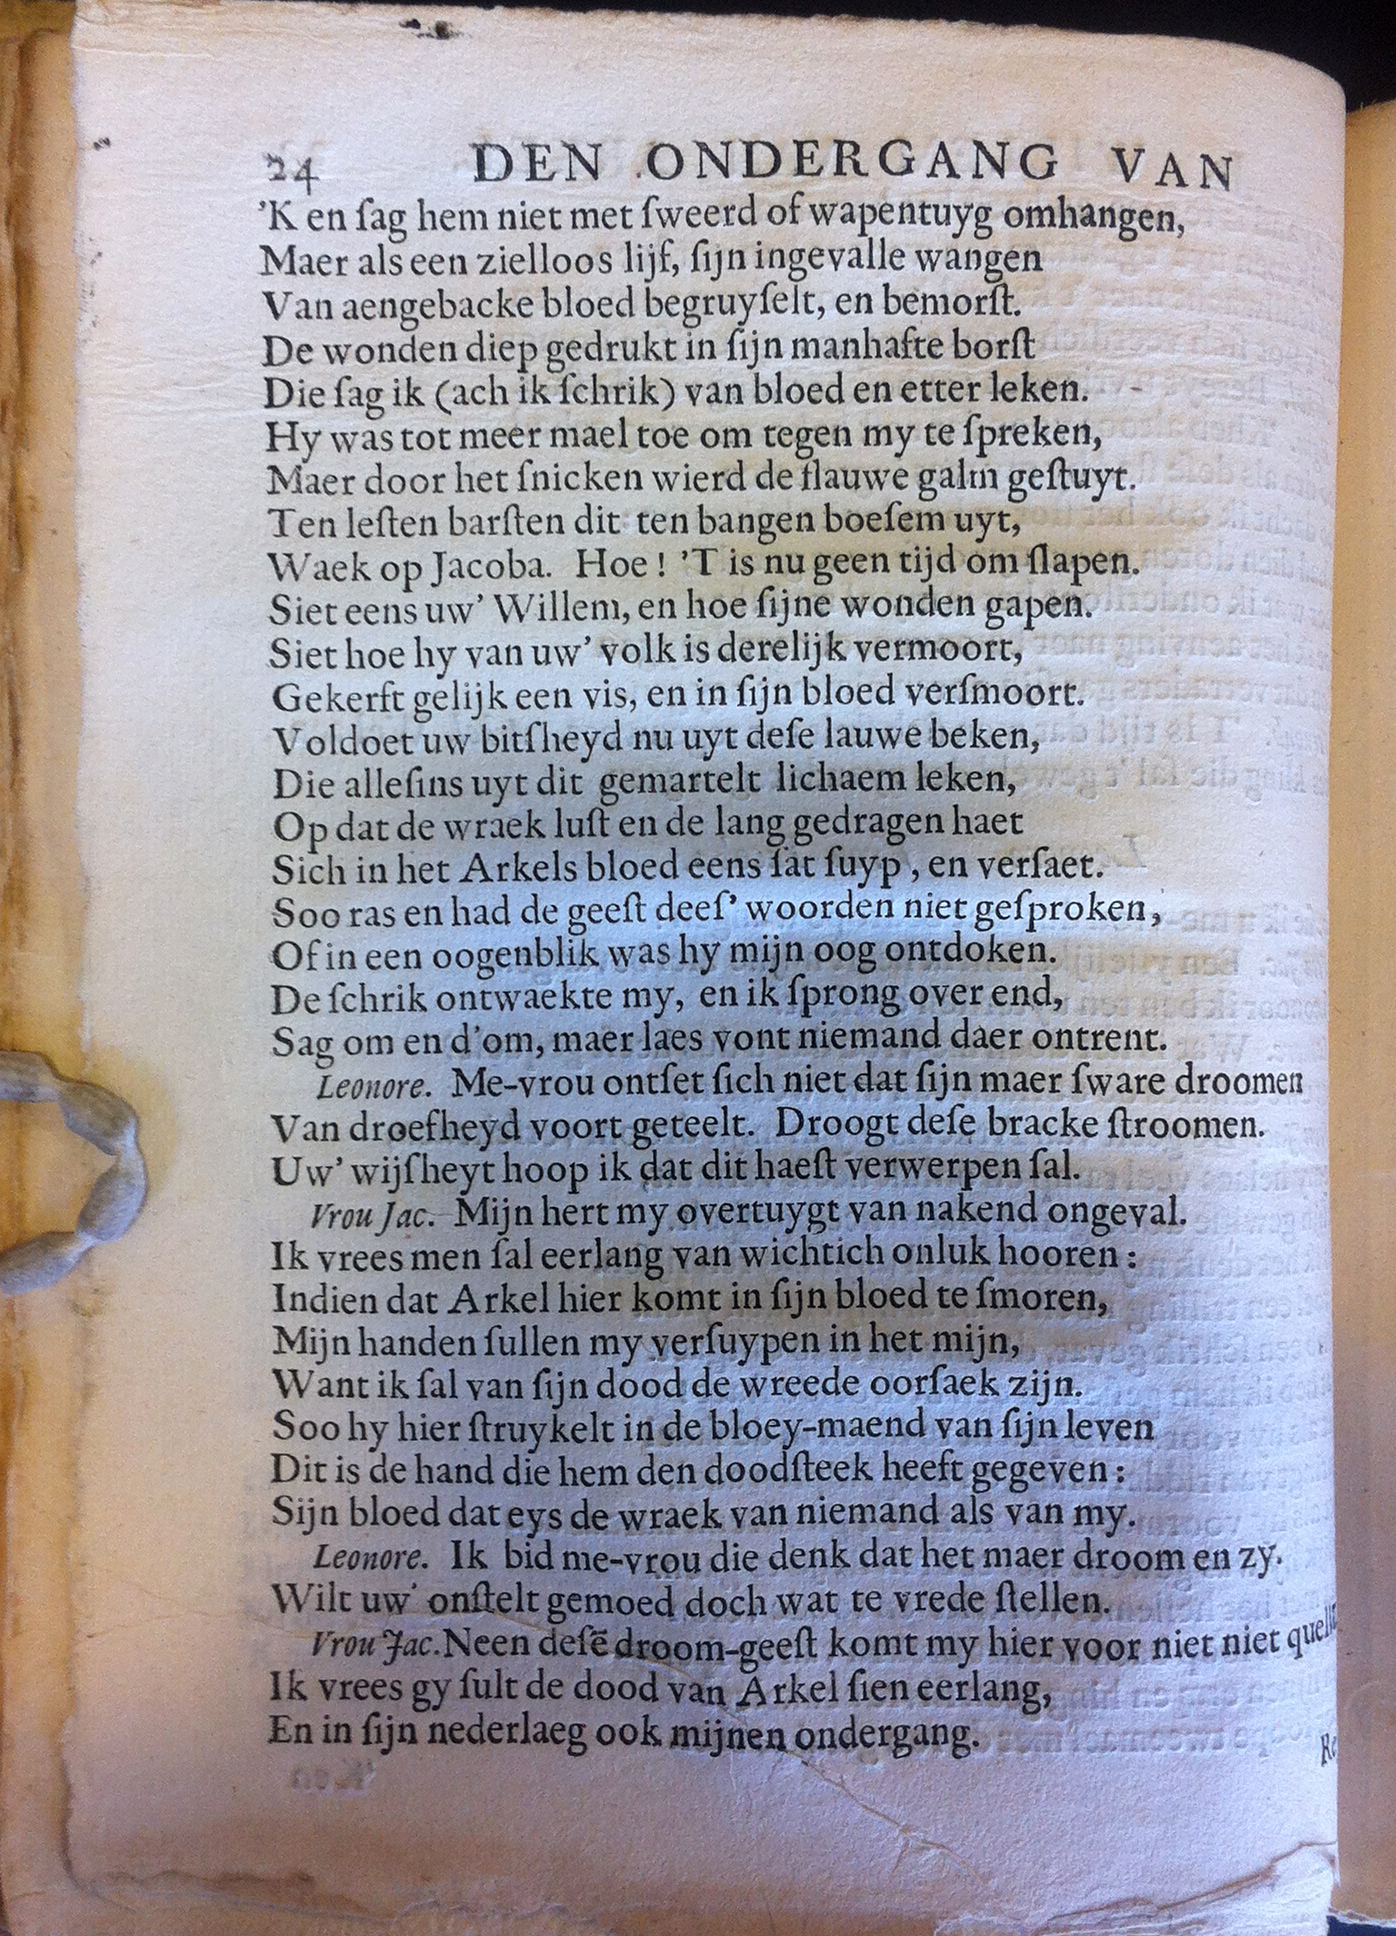 24 DEN ONDERGANG VAN
'K en ſag hem niet met ſweerd of wapentuyg omhangen,
Maer als een zielloos lijf, ſijn ingevalle wangen
Van aengebacke bloed begruyſelt, en bemorſt.
De wonden diep gedrukt in ſijn manhafte borſt
Die ſag ik (ach ik ſchrik) van bloed en etter leken.
Hy was tot meer mael toe om tegen my te ſpreken,
Maer door het ſnicken wierd de flauwe galm geſtuyt.
Ten leſten barſten dit ten bangen boeſem uyt,
Waek op Jacoba. Hoe ! 'T is nu geen tijd om ſlapen.
Siet eens uw' Willem, en hoe ſijne wonden gapen.
Siet hoe hy van uw' volk is derelijk vermoort,
Gekerft gelijk een vis, en in ſijn bloed verſmoort.
Voldoet uw bitſheyd nu uyt deſe lauwe beken,
Die alleſins uyt dit gemartelt lichaem leken,
Op dat de wraek luſt en de lang gedragen haet
Sich in het Arkels bloed eens ſat ſuyp , en verſaet.
Soo ras en had de geeſt deeſ' woorden niet geſproken,
Of in een oogenblik was hy mijn oog ontdoken.
De ſchrik ontwaekte my, en ik ſprong over end,
Sag om en d'om, maer laes vont niemand daer ontrent.
Leonore. Me-vrou ontſet ſich niet dat ſijn maer ſware droomen
Van droefheyd voort geteelt. Droogt deſe bracke ſtroomen.
Uw' wijſheyt hoop ik dat dit haeſt verwerpen ſal.
Vrou Jac. Mijn hert my overtuygt van nakend ongeval.
Ik vrees men ſal eerlang van wichtich onluk hooren :
Indien dat Arkel hier komt in ſijn bloed te ſmoren,
Mijn handen ſullen my verſuypen in het mijn,
Want ik ſal van ſijn dood de wreede oorſaek zijn.
Soo hy hier ſtruykelt in de bloey-maend van ſijn leven
Dit is de hand die hem den doodſteek heeft gegeven :
Sijn bloed dat eys de wraek van niemand als van my.
Leonore. Ik bid me-vrou die denk dat het maer droom en zy.
Wilt uw' onſtelt gemoed doch wat te vrede ſtellen.
Vrou Jac. Neen deſē droom-geeſt komt my hier voor niet niet
Ik vrees gy ſult de dood van Arkel ſien eerlang,
En in ſijn nederlaeg ook mijnen ondergang.